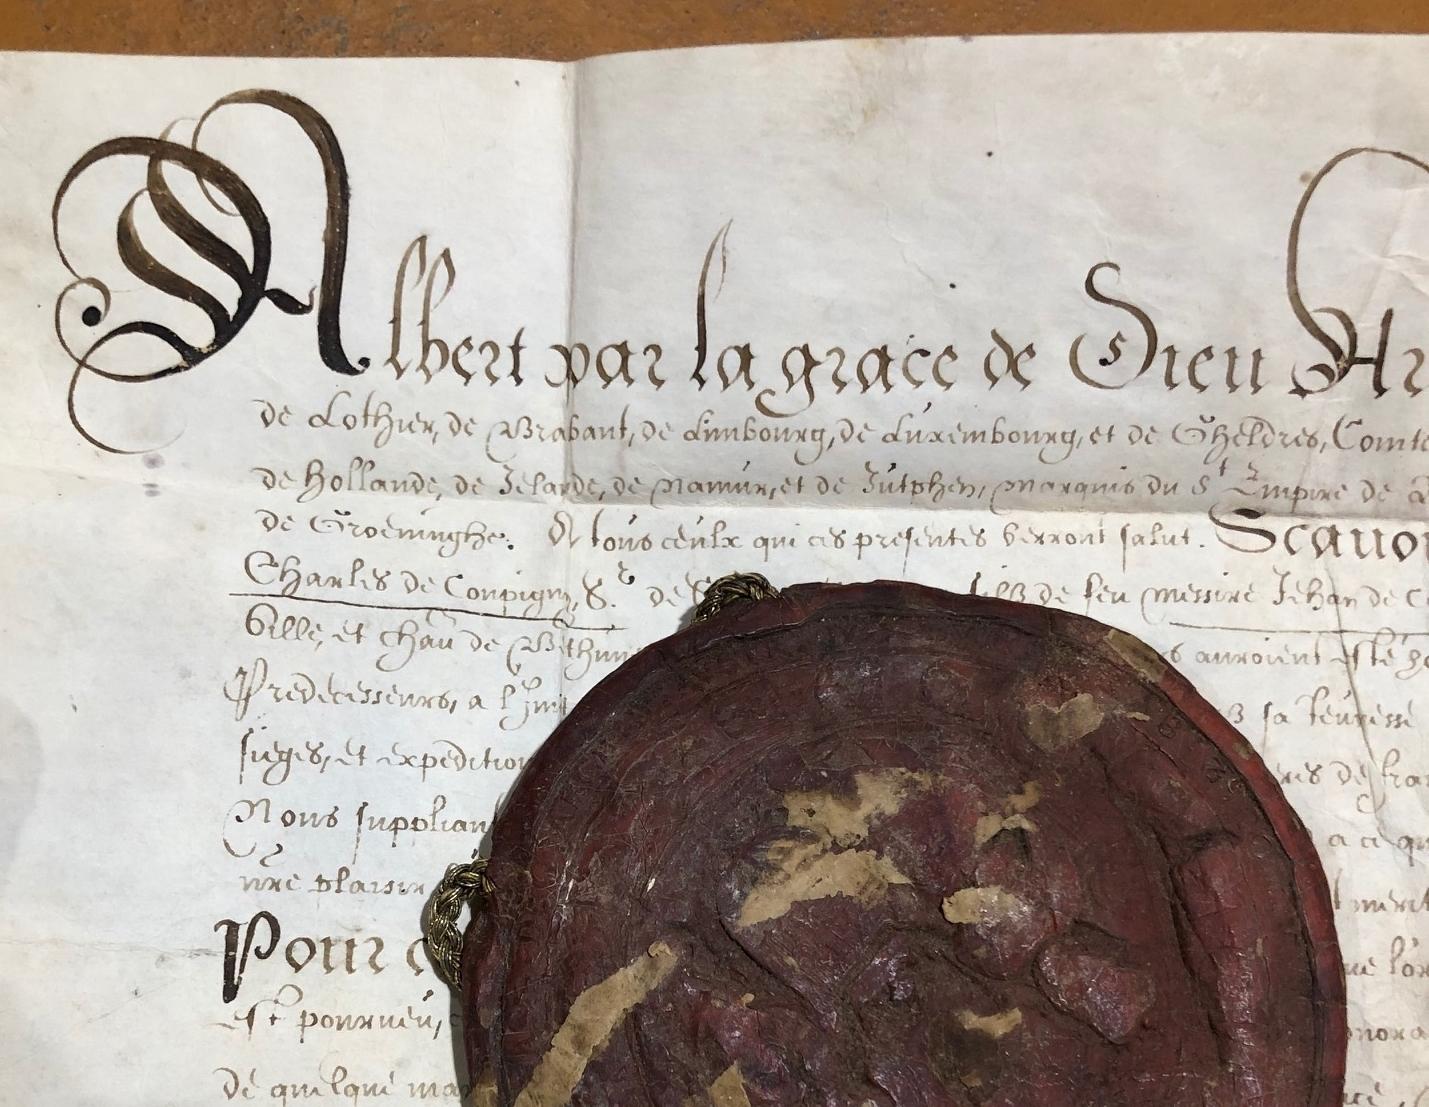 Albert par la grace de Dieu Ar
de Lothier, de Brabant, de Limbourg, de Luxembourg, et de Gheldres, Comte
de Hollande, de Zelande, de Namur, et de Zutphen, Marquis du St Empire de
de Groeninghe. A tous ceulx qui ces presentes verront salut. Scauoi
Charles de Coupigny, Sr de filz de feu messire Jehan de
ville, et chau de Bethun auroient esté
Predecesseurs, a l sa Jeunesse
sieges, et expedition de
Nous supplian a ce qu
nre plaisir merit
Pour
est pourueu,
de quelque